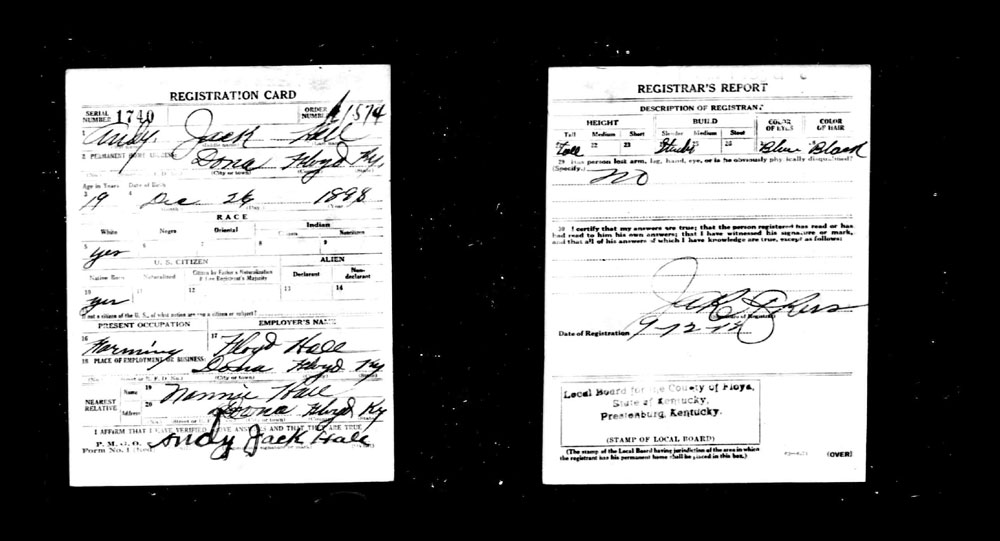 REGISTRATION CARD
SERIAL NUMBER 1740
ORDER NUMBER 1574
1 Andy Jack Hall
2 PERMANENT HOME ADDRESS:
Dona Floyd Ky.
(City or town)
Age in Years Date of Birth
3 19 4 Dec 26 1898
RACE
White Negro Oriental Indian
Citizen Noncitizen
5 6 7 8 9
yes
U. S. CITIZEN ALIEN
Native Born Naturalized Citizen by Father's Naturalization Before Registrant's Majority Declarant Non-declarant
10 11 12 13 14
yes
If not a citizen of the U. S., of what nation are you a citizen or subject?
PRESENT OCCUPATION EMPLOYER'S NAME
16 Farming 17 Floyd Hall
18 PLACE OF EMPLOYMENT OR BUSINESS:
Dona Floyd Ky
(No.) (Street or R. F. D. No.) (City or town)
NEAREST RELATIVE
Name 19 Nannie Hall
Address 20 Dona Floyd Ky
I AFFIRM THAT I HAVE VERIFIED ABOVE ANSWERS AND THAT THEY ARE TRUE
P. M. G. O.
Form No. 1 (Red)
Andy Jack Hall
REGISTRAR'S REPORT
DESCRIPTION OF REGISTRANT
HEIGHT BUILD COLOR OF EYES COLOR OF HAIR
Tall Medium Short Slender Medium Stout
22 23 25 26
Tall Blue Black
29 Has person lost arm, leg, hand, eye, or is he obviously physically disqualified?
(Specify.) NO
30 I certify that my answers are true; that the person registered has read or has
had read to him his own answers; that I have witnessed his signature or mark,
and that all of his answers of which I have knowledge are true, except as follows:
(Signature of Registrar)
Date of Registration 9-12-18
Local Board for the County of Floyd,
State of Kentucky,
Prestonburg, Kentucky.
(STAMP OF LOCAL BOARD)
(The stamp of the Local Board having jurisdiction of the area in which
the registrant has his permanent home shall be placed in this box.)
(OVER)